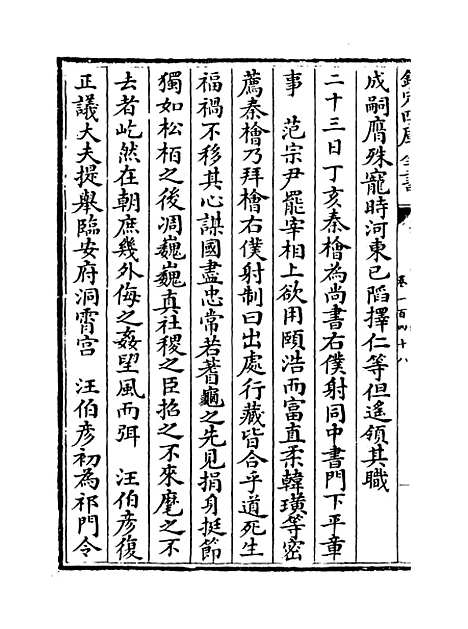 欽定四庫全書
卷一百四十八
成嗣膺殊寵時河東已䧟擇仁等但遥領其職
二十三日丁亥秦檜為尚書右僕射同中書門下平章
事　范宗尹罷宰相上欲用頤浩而富直柔韓璜等密
薦秦檜乃拜檜右僕射制曰出處行藏皆合乎道死生
福禍不移其心謀國盡忠常若蓍龜之先見捐身挺節
獨如松栢之後凋巍巍真社稷之臣招之不來麾之不
去者屹然在朝庶幾外侮之姦望風而弭　汪伯彦復
正議大夫提舉臨安府洞霄宫　汪伯彦初為祁門令